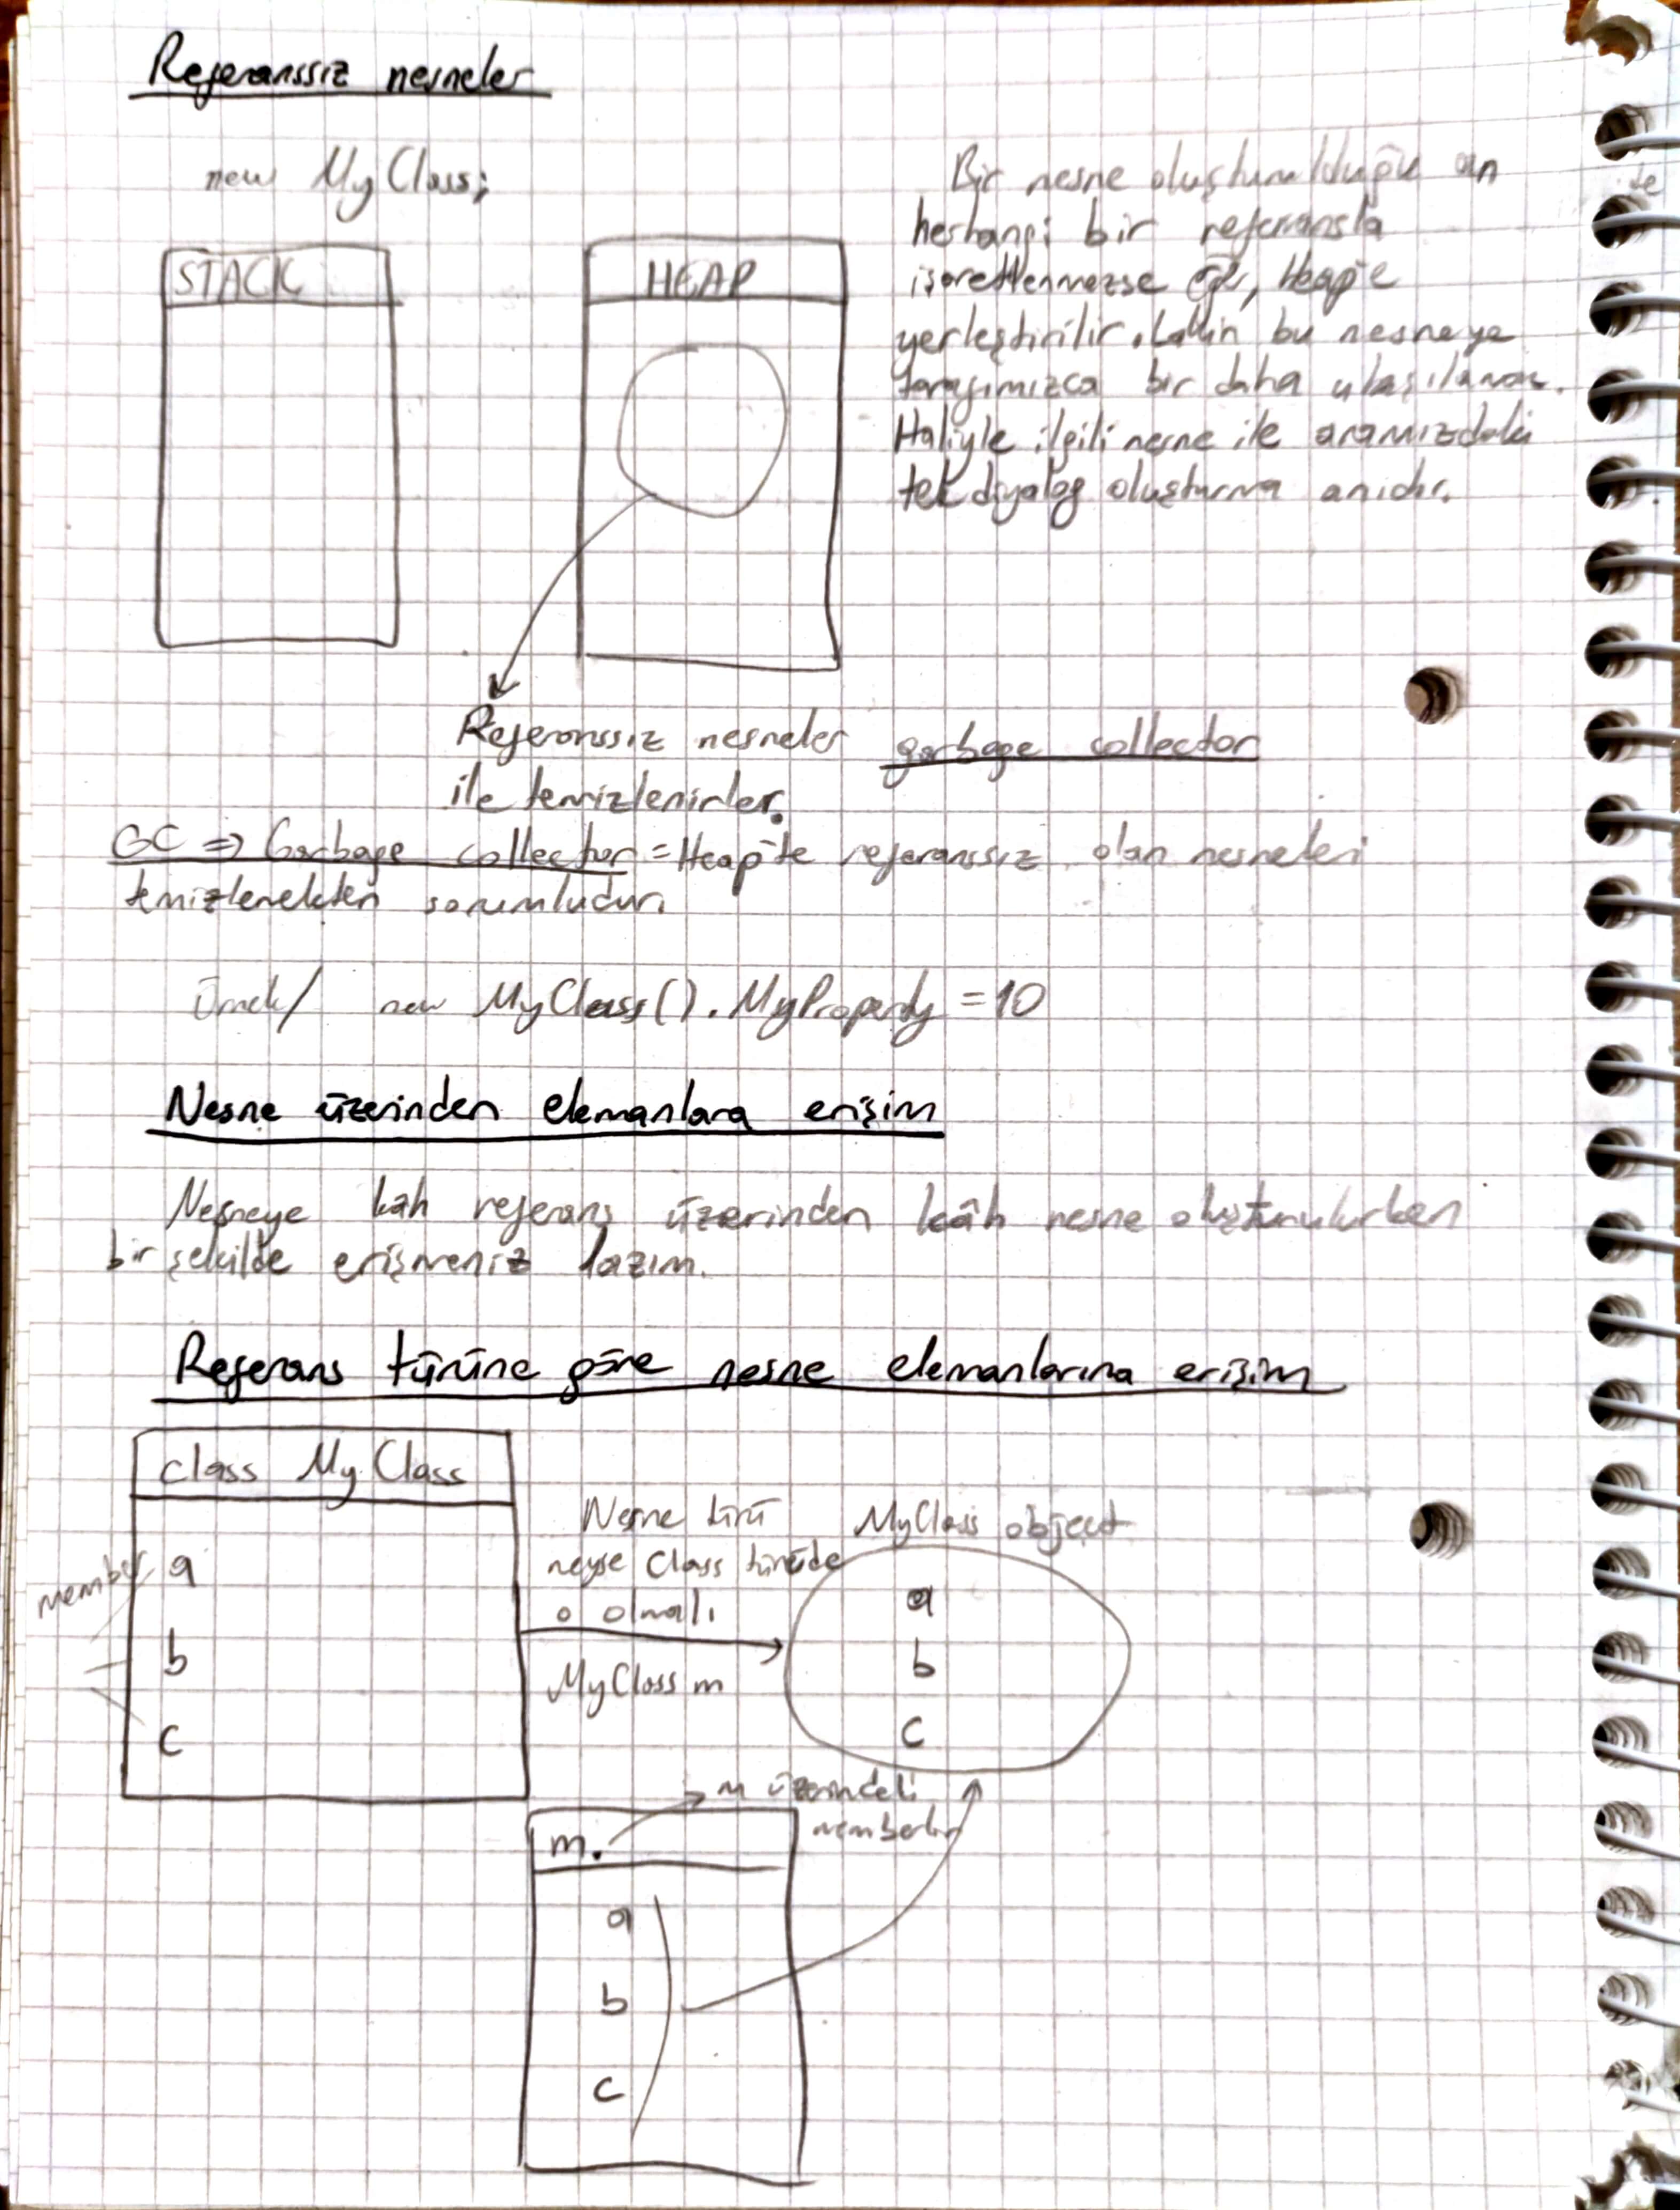 Referanssız nesneler
new MyClass;
STACK
HEAP
Bir nesne oluşturulduğu an
herhangi bir referansla
işaretlenmezse eğer, Heap'e
yerleştirilir. Lakin bu nesneye
tarafımızca bir daha ulaşılamaz.
Haliyle ilgili nesne ile aramızdaki
tek diyalog oluşturma anıdır.
Referanssız nesneler garbage collector
ile temizlenirler.
GC => Garbage collector = Heap'te referanssız olan nesneleri
temizlemekten sorumludur.
Örnek/ new MyClass().MyProperty = 10
Nesne üzerinden elemanlara erişim
Nesneye kâh referans üzerinden kâh nesne oluşturulurken
bir şekilde erişmeniz lazım.
Referans türüne göre nesne elemanlarına erişim
class MyClass
member
a
b
c
Nesne türü
neyse Class türüde
o olmalı
MyClass m
MyClass object
a
b
c
m üzerindeki
memberlar
m.
a
b
c